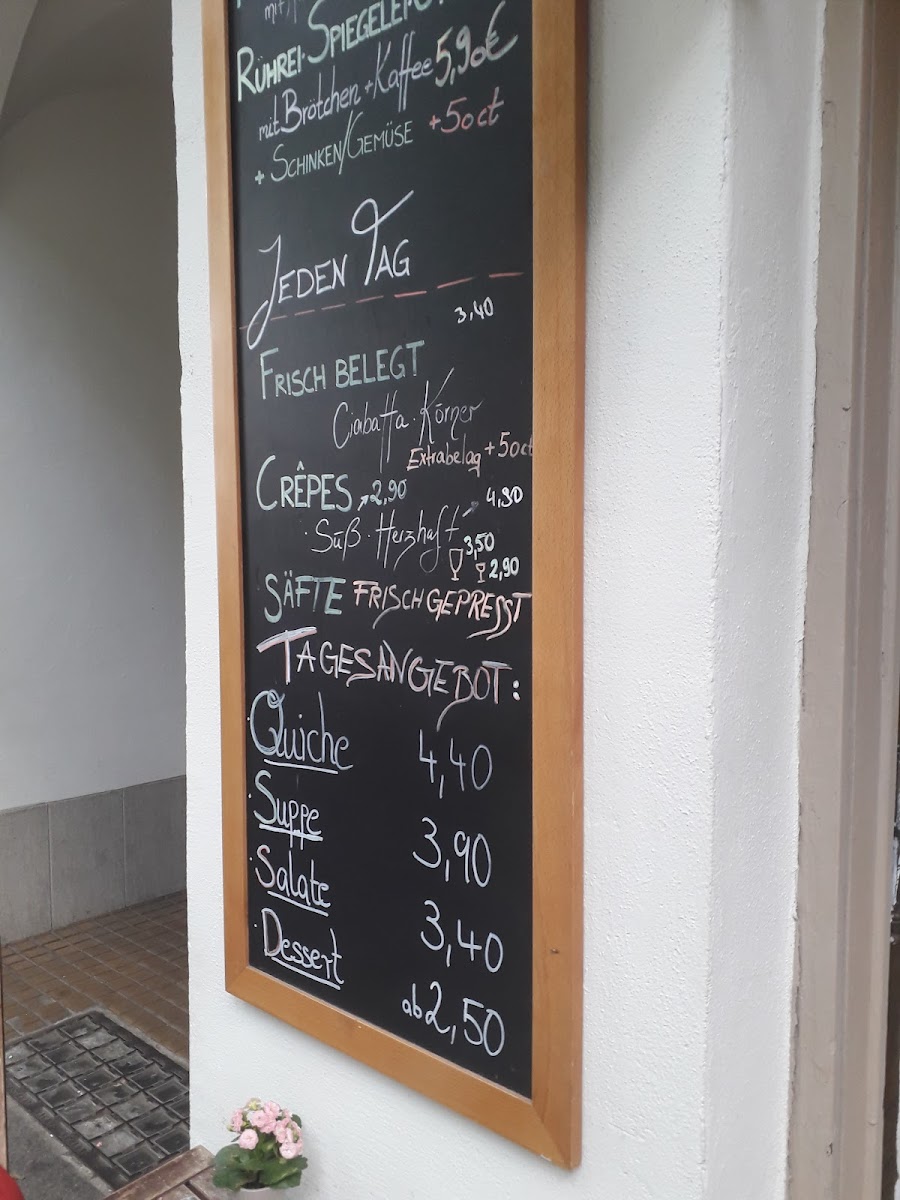 mit
RÜHREI·SPIEGELEI
mit Brötchen + Kaffee 5,90€
+ SCHINKEN/GEMÜSE +50ct
JEDEN TAG
3,40
FRISCH BELEGT
Ciabatta · Körner
Extrabelag +50ct
CRÊPES 2,90
4,90
· Süß · Herzhaft
3,50
2,90
SÄFTE FRISCH GEPRESST
TAGESANGEBOT:
· Quiche 4,40
· Suppe 3,90
· Salate 3,40
· Dessert ab 2,50